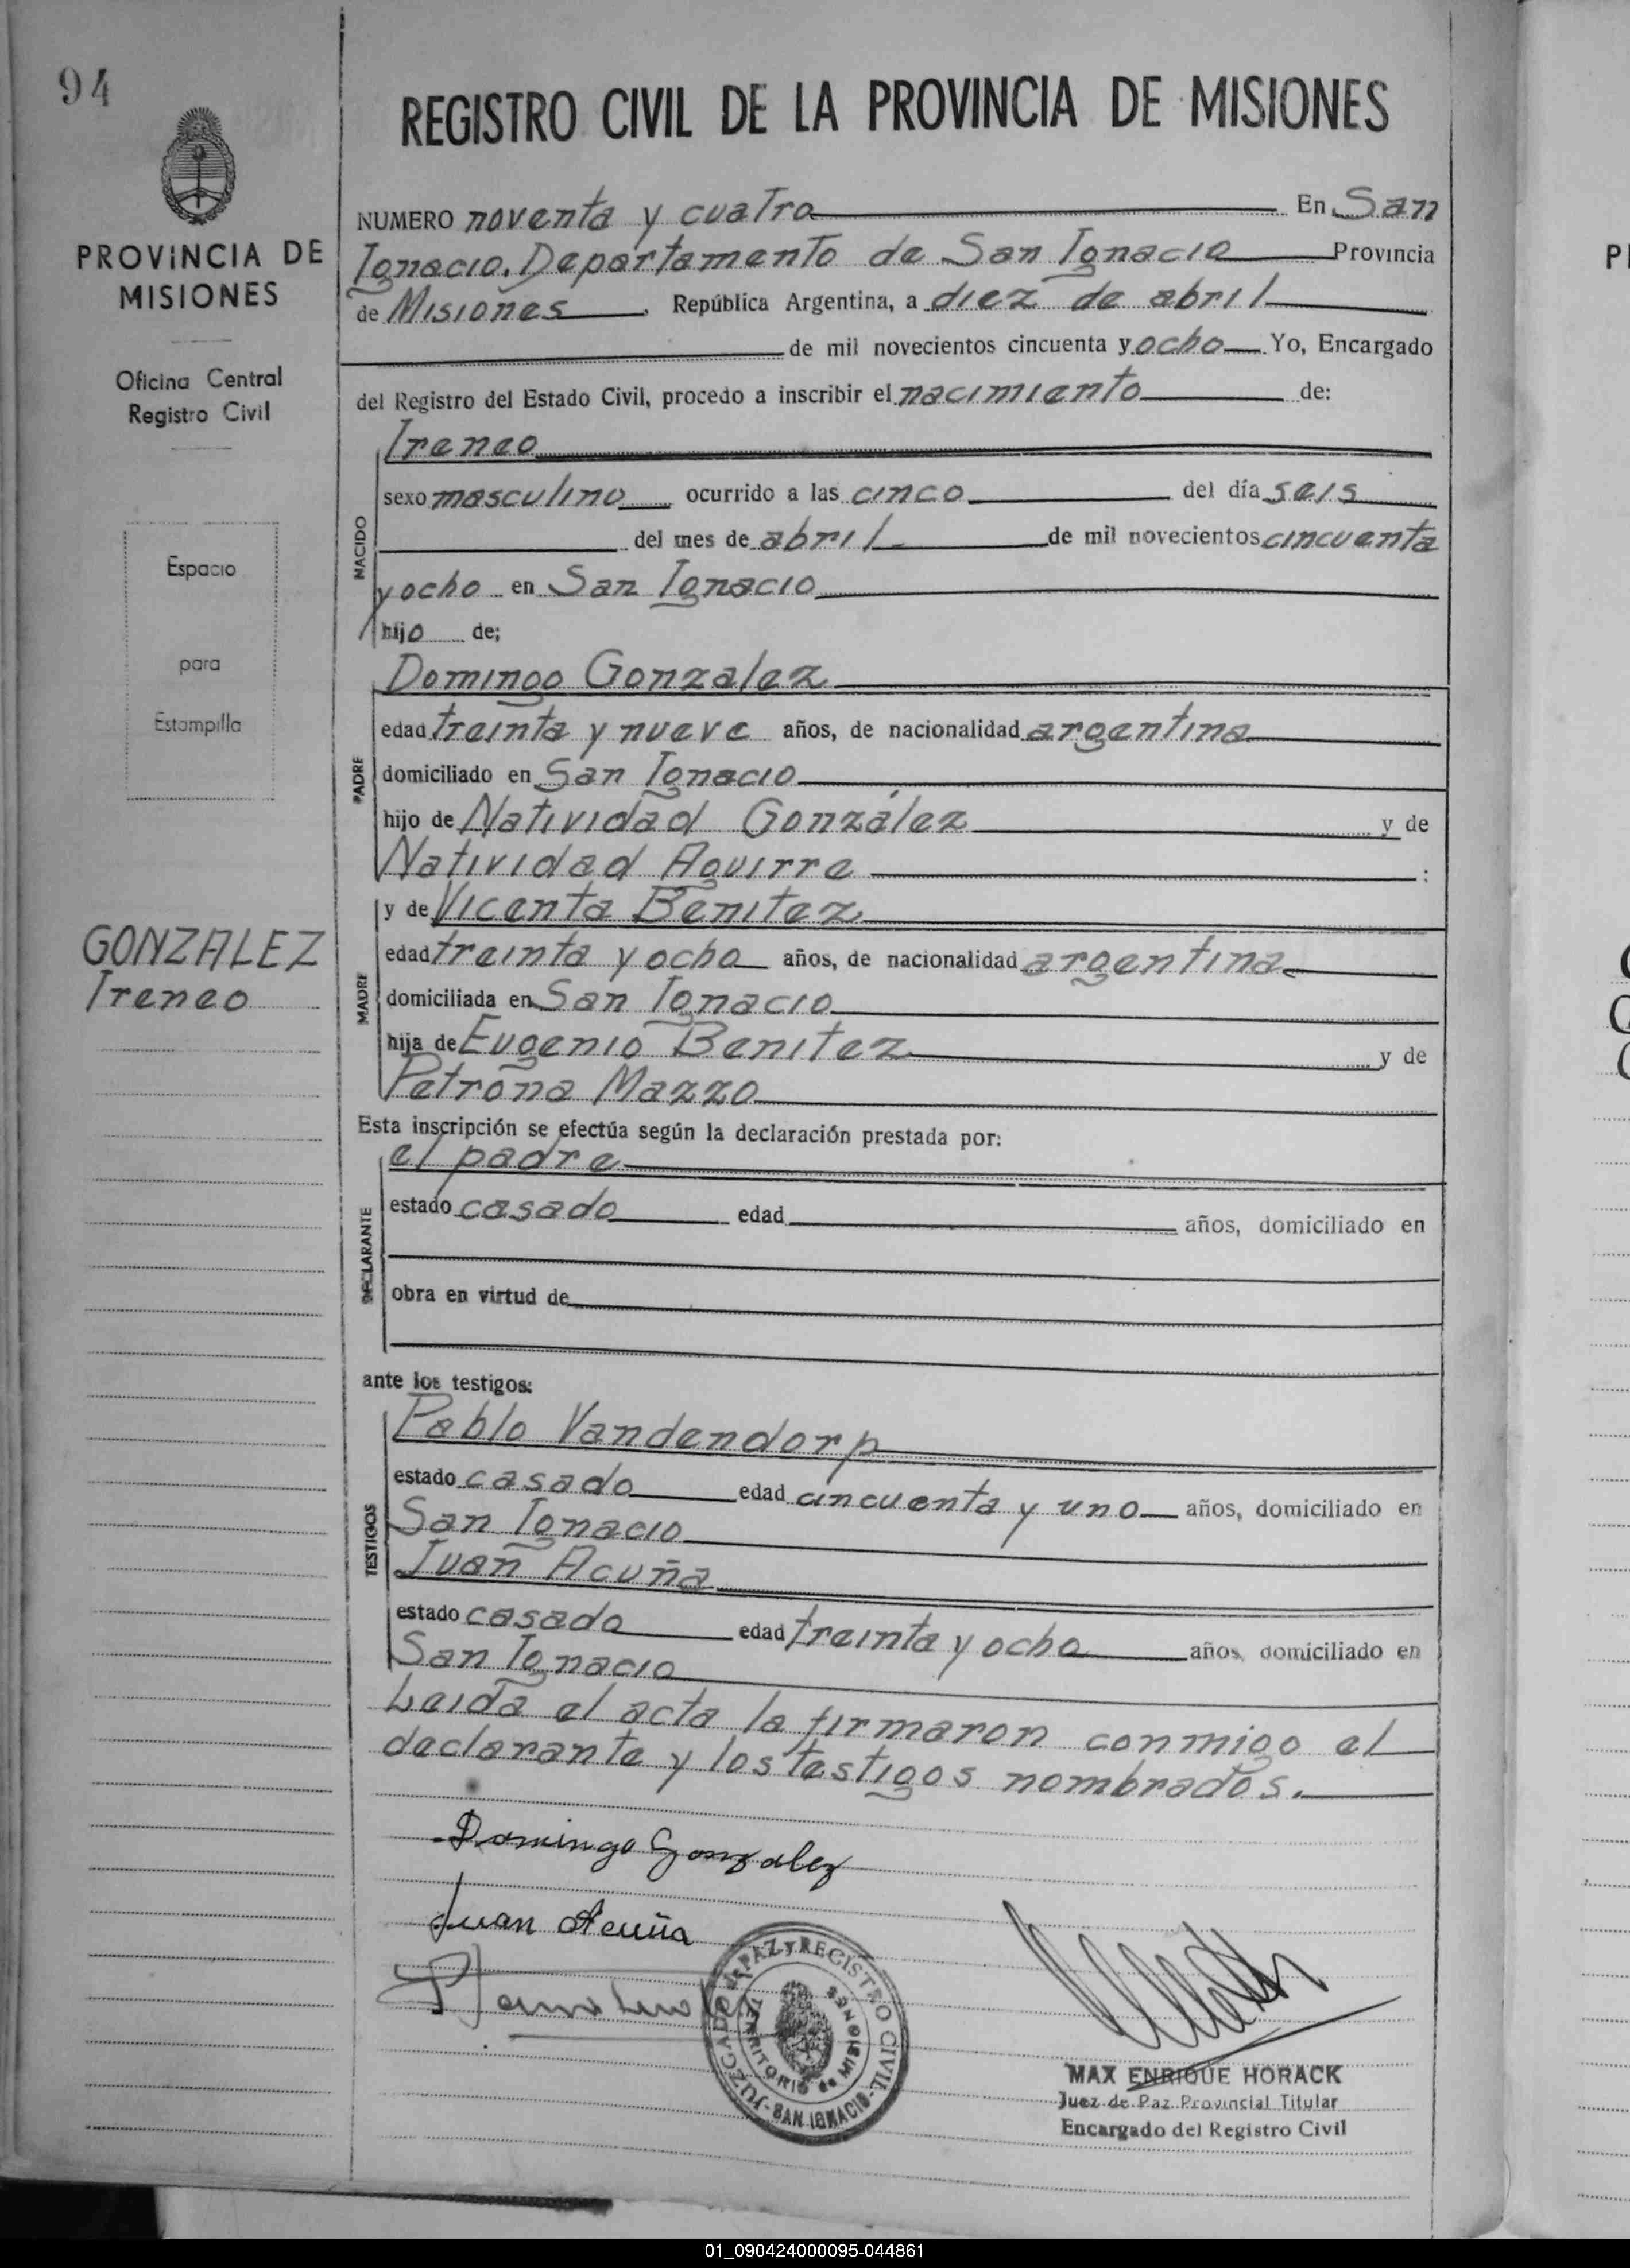 94
REGISTRO CIVIL DE LA PROVINCIA DE MISIONES
PROVINCIA DE
MISIONES
Oficina Central
Registro Civil
Espacio
para
Estampilla
GONZALEZ
Ireneo
NUMERO noventa y cuatro En San
Ignacio, Departamento de San Ignacio Provincia
de Misiones, República Argentina, a diez de abril
de mil novecientos cincuenta y ocho Yo, Encargado
del Registro del Estado Civil, procedo a inscribir el nacimiento de:
NACIDO
Ireneo
sexo masculino ocurrido a las cinco del día seis
del mes de abril de mil novecientos cincuenta
y ocho en San Ignacio
hijo de;
PADRE
Domingo Gonzalez
edad treinta y nueve años, de nacionalidad argentina
domiciliado en San Ignacio
hijo de Natividad González y de
Natividad Aguirre :
MADRE
y de Vicenta Benitez
edad treinta y ocho años, de nacionalidad argentina
domiciliada en San Ignacio
hija de Eugenio Benitez y de
Petrona Mazzo
Esta inscripción se efectúa según la declaración prestada por:
DECLARANTE
el padre
estado casado edad años, domiciliado en
obra en virtud de
ante los testigos:
TESTIGOS
Pablo Vandendorp
estado casado edad cincuenta y uno años, domiciliado en
San Ignacio
Juan Acuña
estado casado edad treinta y ocho años, domiciliado en
San Ignacio
Leida el acta la firmaron conmigo el
declarante y los testigos nombrados.
Domingo Gonzalez
Juan Acuña
JUZGADO DE PAZ Y REGISTRO CIVIL
TERRITORIO de MISIONES
- SAN IGNACIO -
MAX ENRIQUE HORACK
Juez de Paz Provincial Titular
Encargado del Registro Civil
01_090424000095-044861